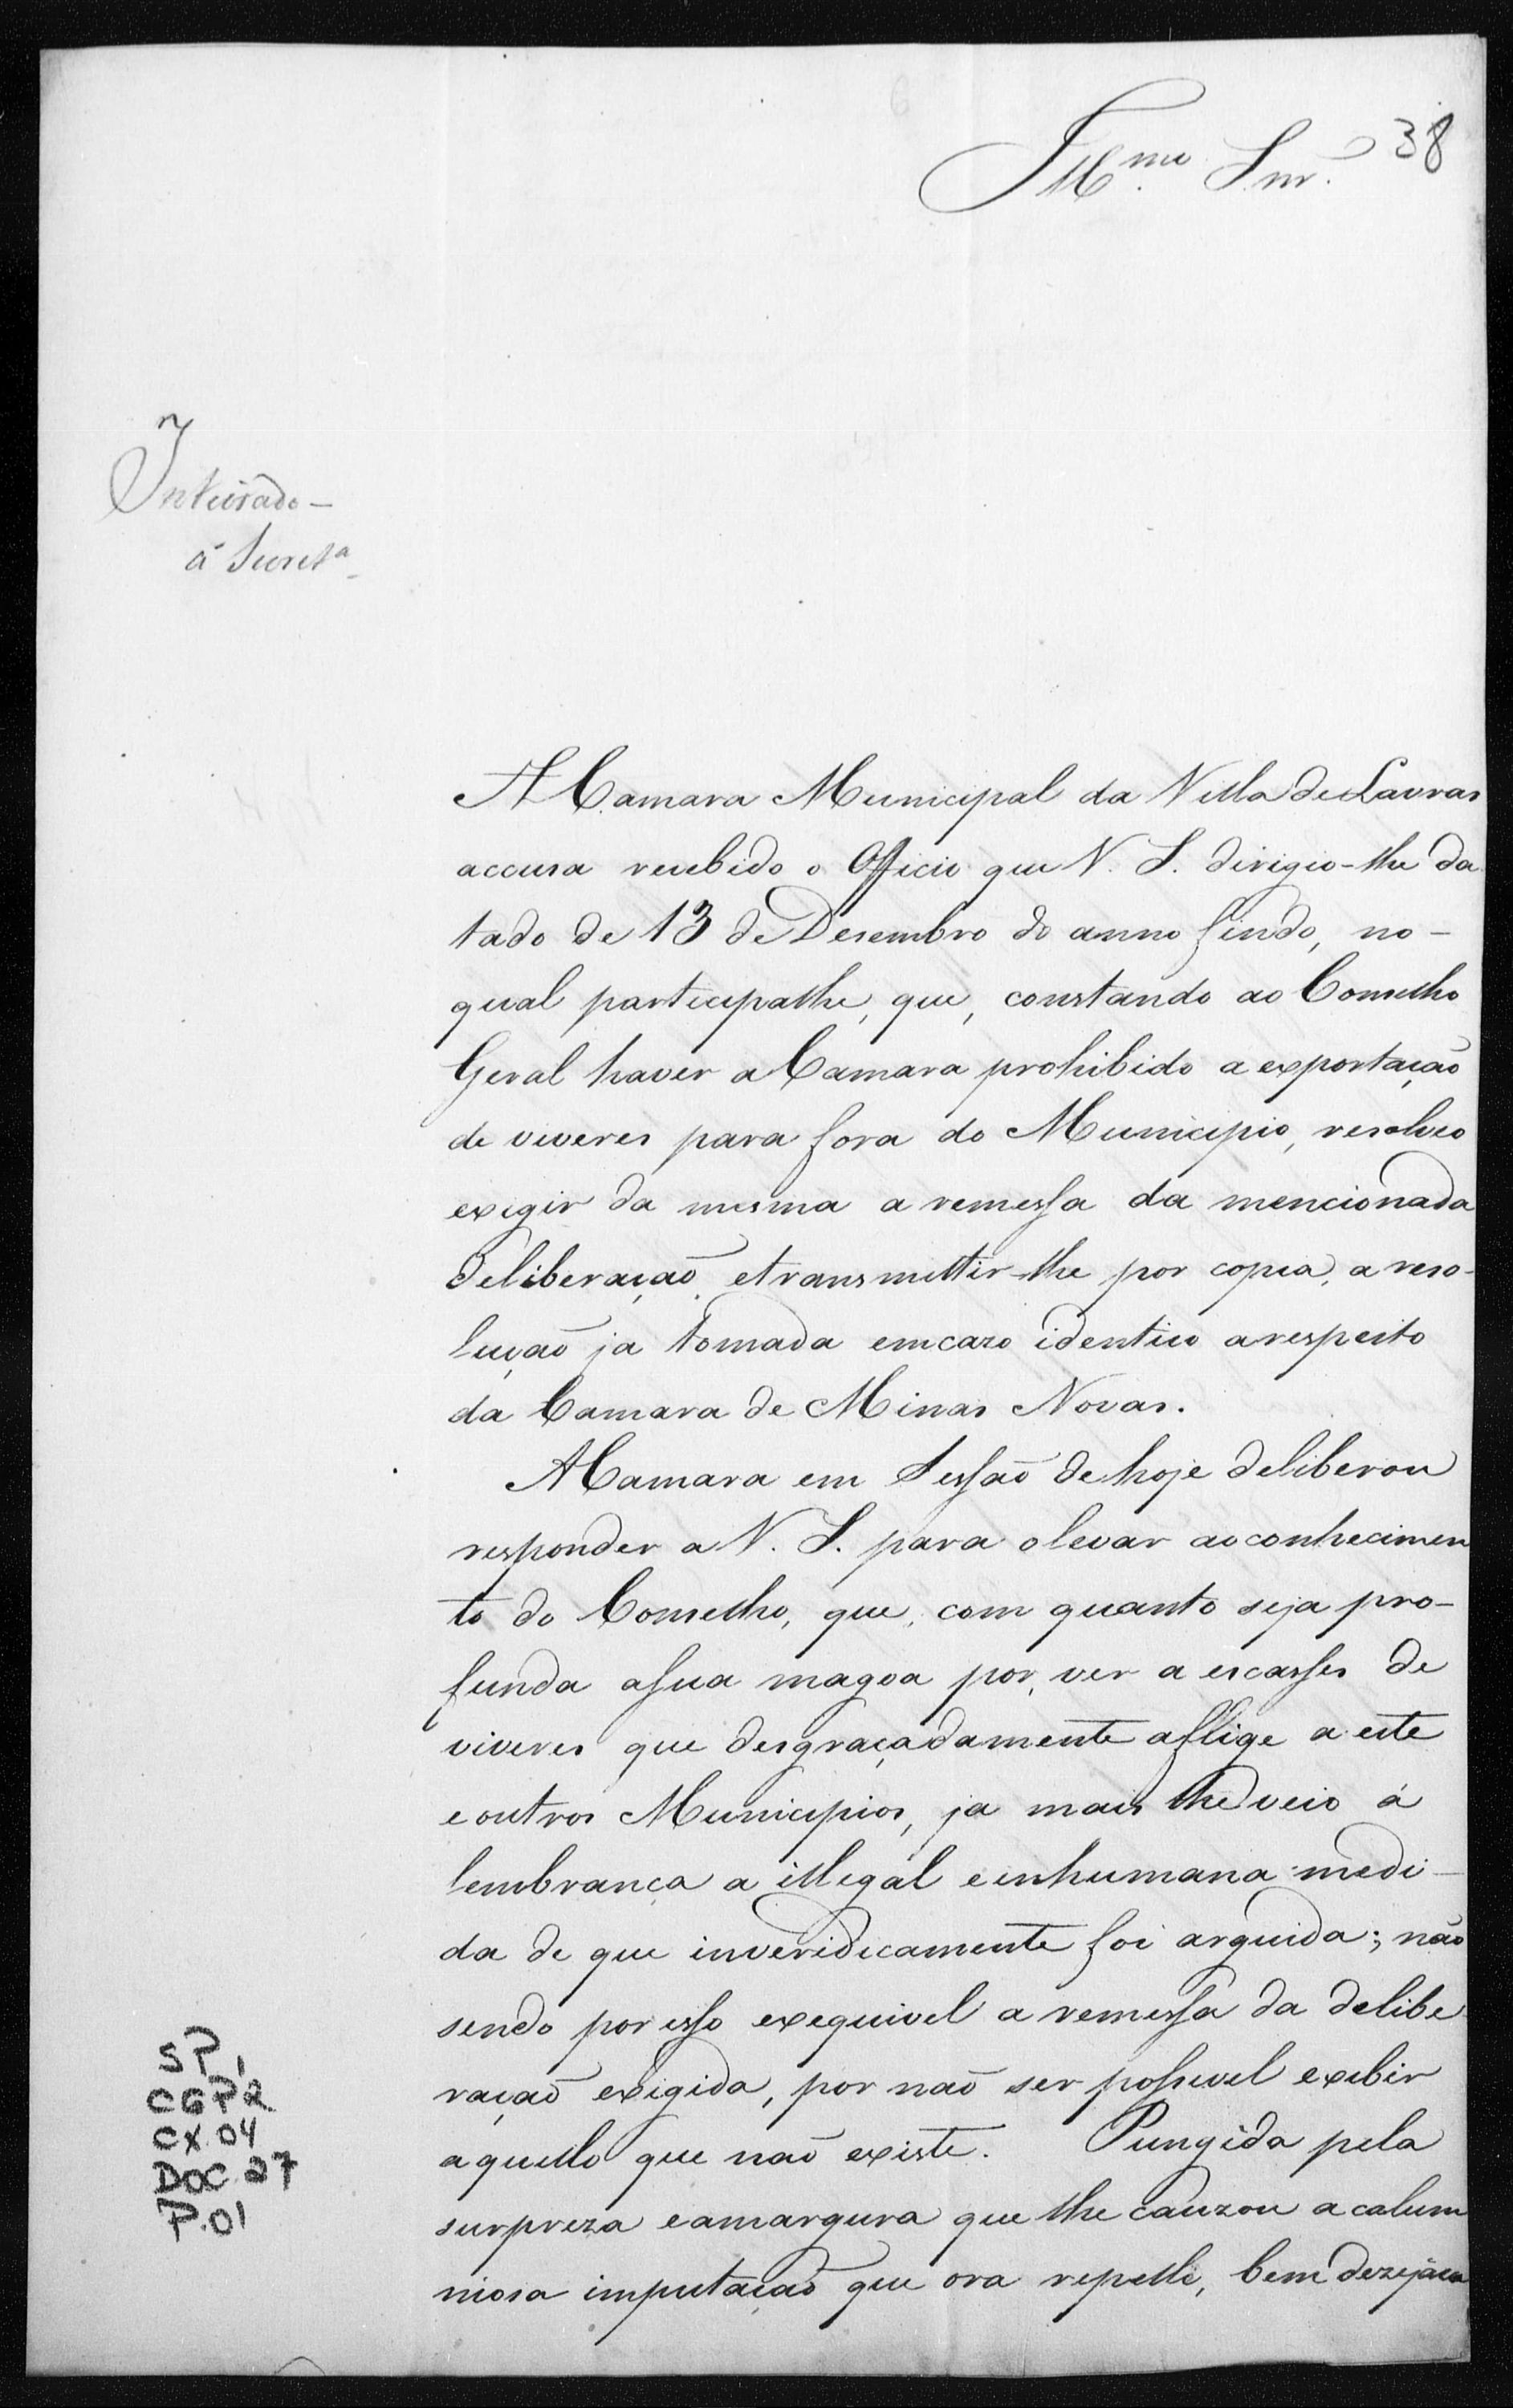 38
Illmo. Snr.
Inteirado -
á Secreta
A Camara Municipal da Villa de Lavras
accusa recebido o Officio que V. S. dirigio-lhe da
tado de 13 de Desembro do anno findo, no-
qual participalhe, que, constando ao Conselho
Geral haver a Camara prohibido a exportação
de viveres para fora do Municipio, resolveo
exigir da mesma a remessa da mencionada
deliberação, etransmittir-lhe por copia, a reso-
lução ja tomada emcaso identico arespeito
da Camara de Minas Novas.
A Camara em Sessão de hoje deliberou
responder a V. S. para olevar aoconhecimen
to do Conselho, que, com quanto seja pro-
funda asua magoa por, ver a escasses de
viveres que desgraçadamente aflige a este
eoutros Municipios, ja mais lhe veio á
lembrança a illegal einhumana medi-
da de que inveridicamente foi arguida; não
sendo porisso exequivel a remessa da delibe
ração exigida, por não ser possivel exibir
aquello que não existe. Pungida pela
surpreza eamargura que lhe cauzou acalum
niosa imputação que ora repelle, bem dezejára
SP1
CGP2
CX.04
DOC 27
P.01